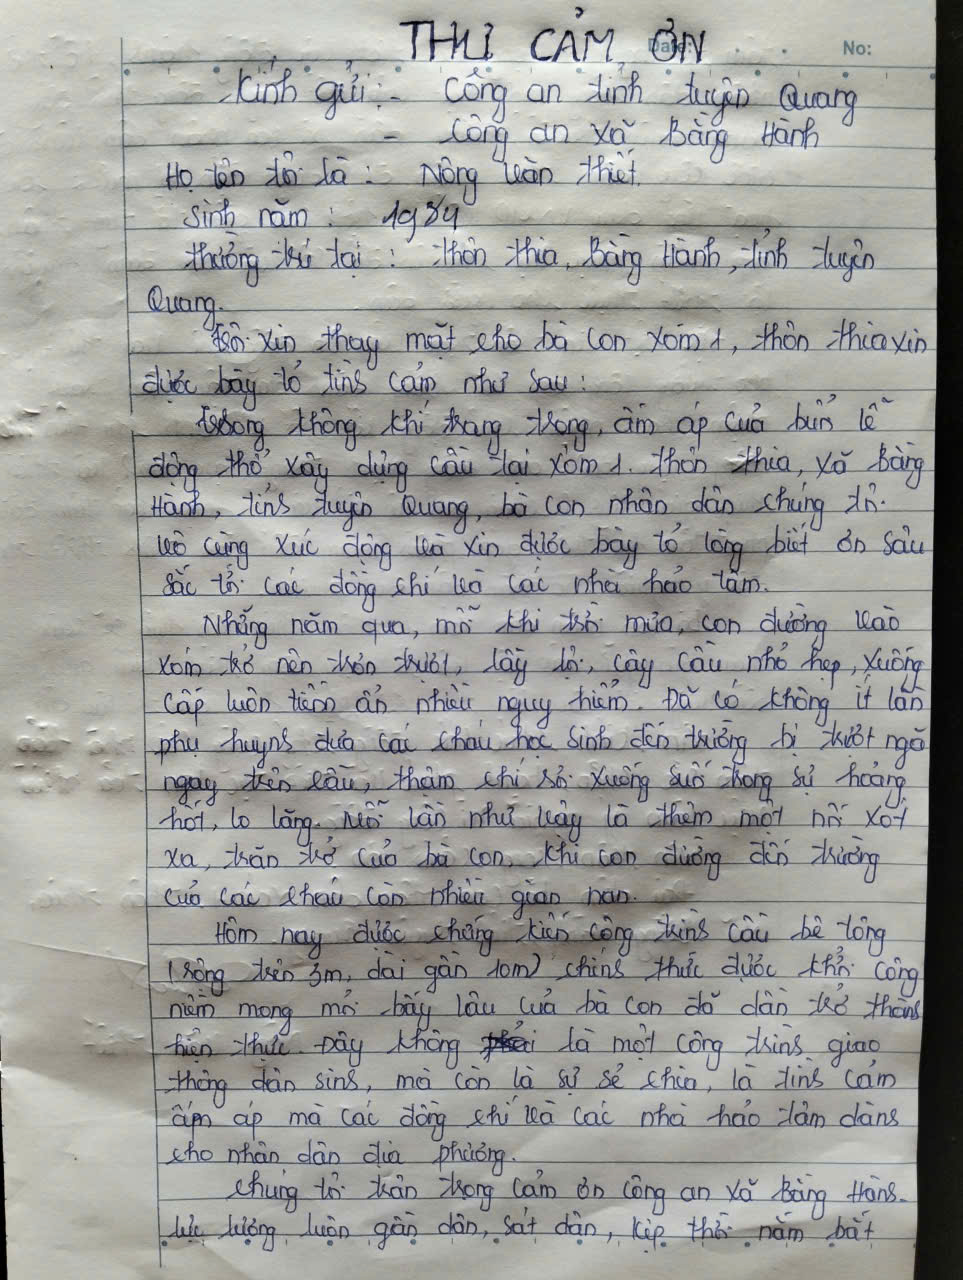 THƯ CẢM ƠN
Date: No:
Kính gửi: - Công an tỉnh Tuyên Quang
- Công an xã Bằng Hành
Họ tên tôi là: Nông Văn Thiết
Sinh năm: 1984
Thường trú tại: thôn Thia, Bằng Hành, tỉnh Tuyên
Quang.
Tôi xin thay mặt cho bà con xóm 1, thôn Thia xin
được bày tỏ tình cảm như sau:
Trong không khí trang trọng, ấm áp của buổi lễ
động thổ xây dựng cầu tại xóm 1. thôn Thia, xã Bằng
Hành, tỉnh Tuyên Quang, bà con nhân dân chúng tôi
vô cùng xúc động và xin được bày tỏ lòng biết ơn sâu
sắc tới các đồng chí và các nhà hảo tâm.
Những năm qua, mỗi khi trời mưa, con đường vào
xóm trở nên trơn trượt, lầy lội, cây cầu nhỏ hẹp, xuống
cấp luôn tiềm ẩn nhiều nguy hiểm. Đã có không ít lần
phụ huynh đưa các cháu học sinh đến trường bị trượt ngã
ngay trên cầu, thậm chí rơi xuống suối trong sự hoảng
hốt, lo lắng. Mỗi lần như vậy là thêm một nỗi xót
xa, trăn trở của bà con, khi con đường đến trường
của các cháu còn nhiều gian nan.
Hôm nay được chứng kiến công trình cầu bê tông
(rộng trên 3m, dài gần 10m) chính thức được khởi công
niềm mong mỏi bấy lâu của bà con đã dần trở thành
hiện thực. Đây không phải là một công trình giao
thông dân sinh, mà còn là sự sẻ chia, là tình cảm
ấm áp mà các đồng chí và các nhà hảo tâm dành
cho nhân dân địa phương.
Chúng tôi trân trọng cảm ơn công an xã Bằng Hành.
lực lượng luôn gần dân, sát dân, kịp thời nắm bắt